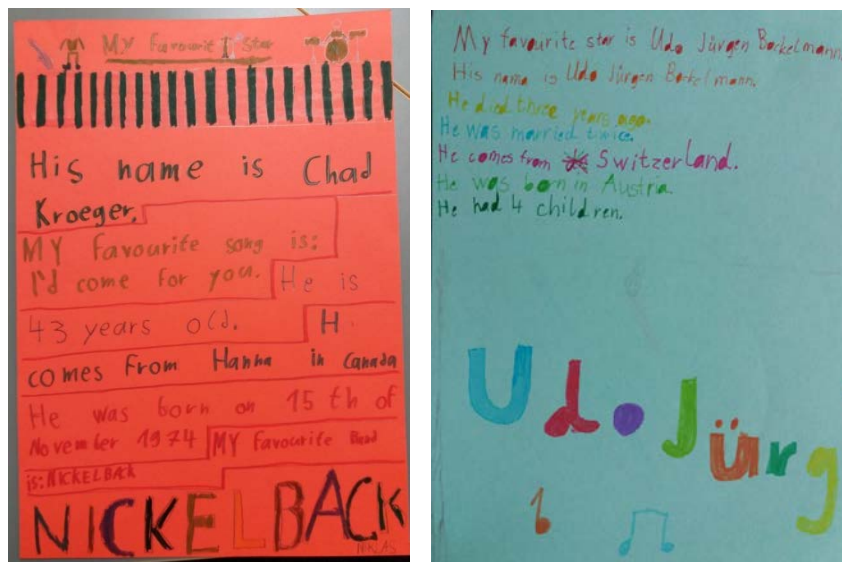 My favourite star
His name is Chad
Kroeger.
MY favourite song is:
I'd come for you. He is
43 years old. H
comes from Hanna in Canada
He was born on 15 th of
November 1974 MY favourite Band
is: NICKELBACK
NICKELBACK
NIKLAS
My favourite star is Udo Jürgen Bockelmann.
His name is Udo Jürgen Bockelmann.
He died three years ago.
He was married twice.
He comes from Switzerland.
He was born in Austria.
He had 4 children.
Udo Jürg